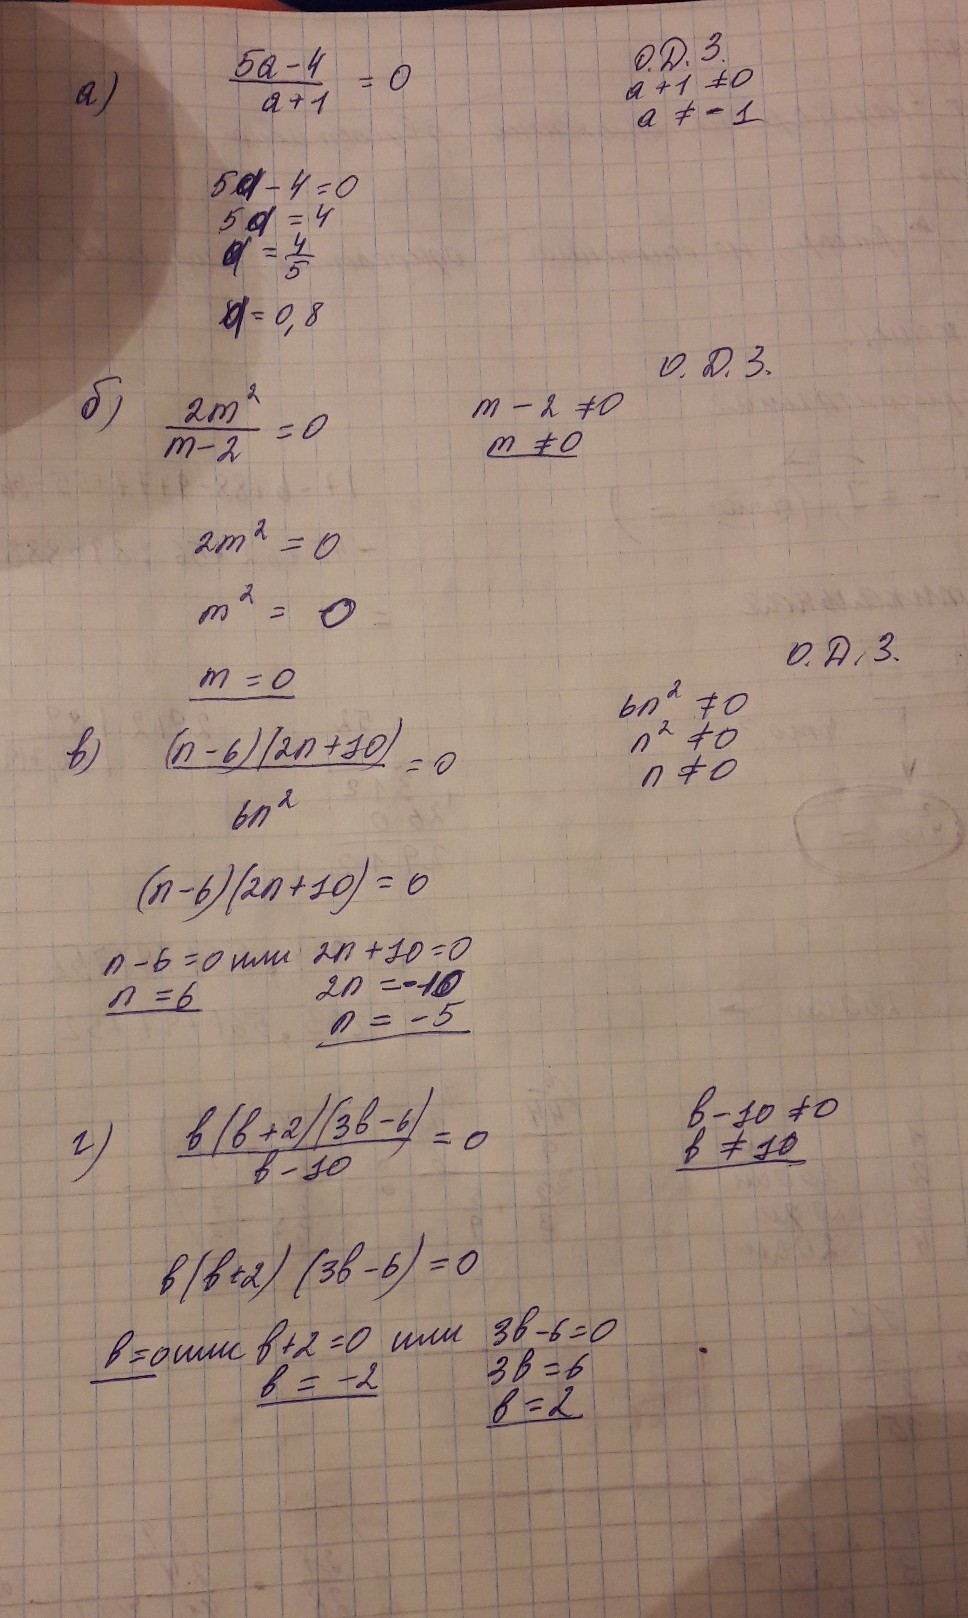 а) (5a-4)/(a+1) = 0
О.Д.З.
a+1 ≠ 0
a ≠ -1
5a-4=0
5a = 4
a = 4/5
a = 0,8
О.Д.З.
б) 2m²/(m-2) = 0
m-2 ≠ 0
m ≠ 0
2m² = 0
m² = 0
m = 0
О.Д.З.
в) (n-6)(2n+10)/6n² = 0
6n² ≠ 0
n² ≠ 0
n ≠ 0
(n-6)(2n+10) = 0
n-6=0 или 2n+10=0
n = 6
2n = -10
n = -5
г) в(в+2)(3в-6)/(в-10) = 0
в-10 ≠ 0
в ≠ 10
в(в+2)(3в-6) = 0
в=0 или в+2=0 или 3в-6=0
в = -2
3в=6
в=2